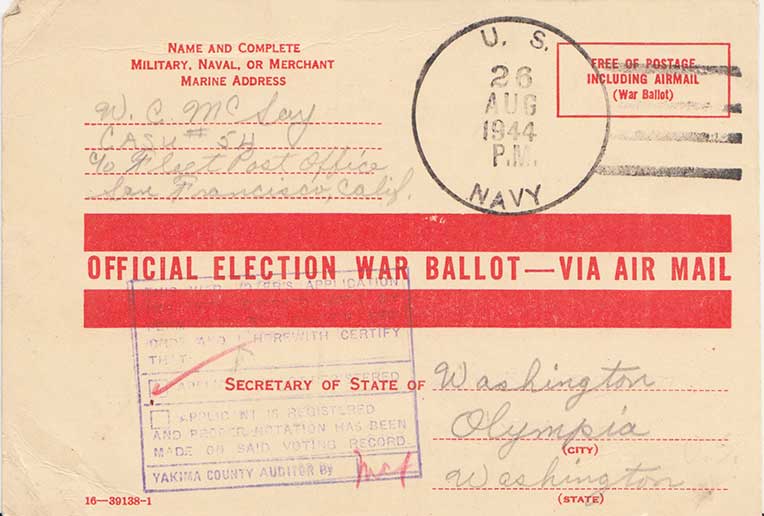 NAME AND COMPLETE
MILITARY, NAVAL, OR MERCHANT
MARINE ADDRESS
W. C. McSay
CASU # 54
c/o Fleet Post Office
San Francisco, Calif.
U. S.
26
AUG
1944
P.M.
NAVY
FREE OF POSTAGE
INCLUDING AIRMAIL
(War Ballot)
OFFICIAL ELECTION WAR BALLOT—VIA AIR MAIL
THIS WAR VOTER'S APPLICATION
AND I HEREWITH CERTIFY
THAT
SECRETARY OF STATE OF Washington
Olympia
(CITY)
Washington
(STATE)
APPLICANT IS REGISTERED
AND PROPER NOTATION HAS BEEN
MADE ON SAID VOTING RECORD.
YAKIMA COUNTY AUDITOR BY
16—39138-1